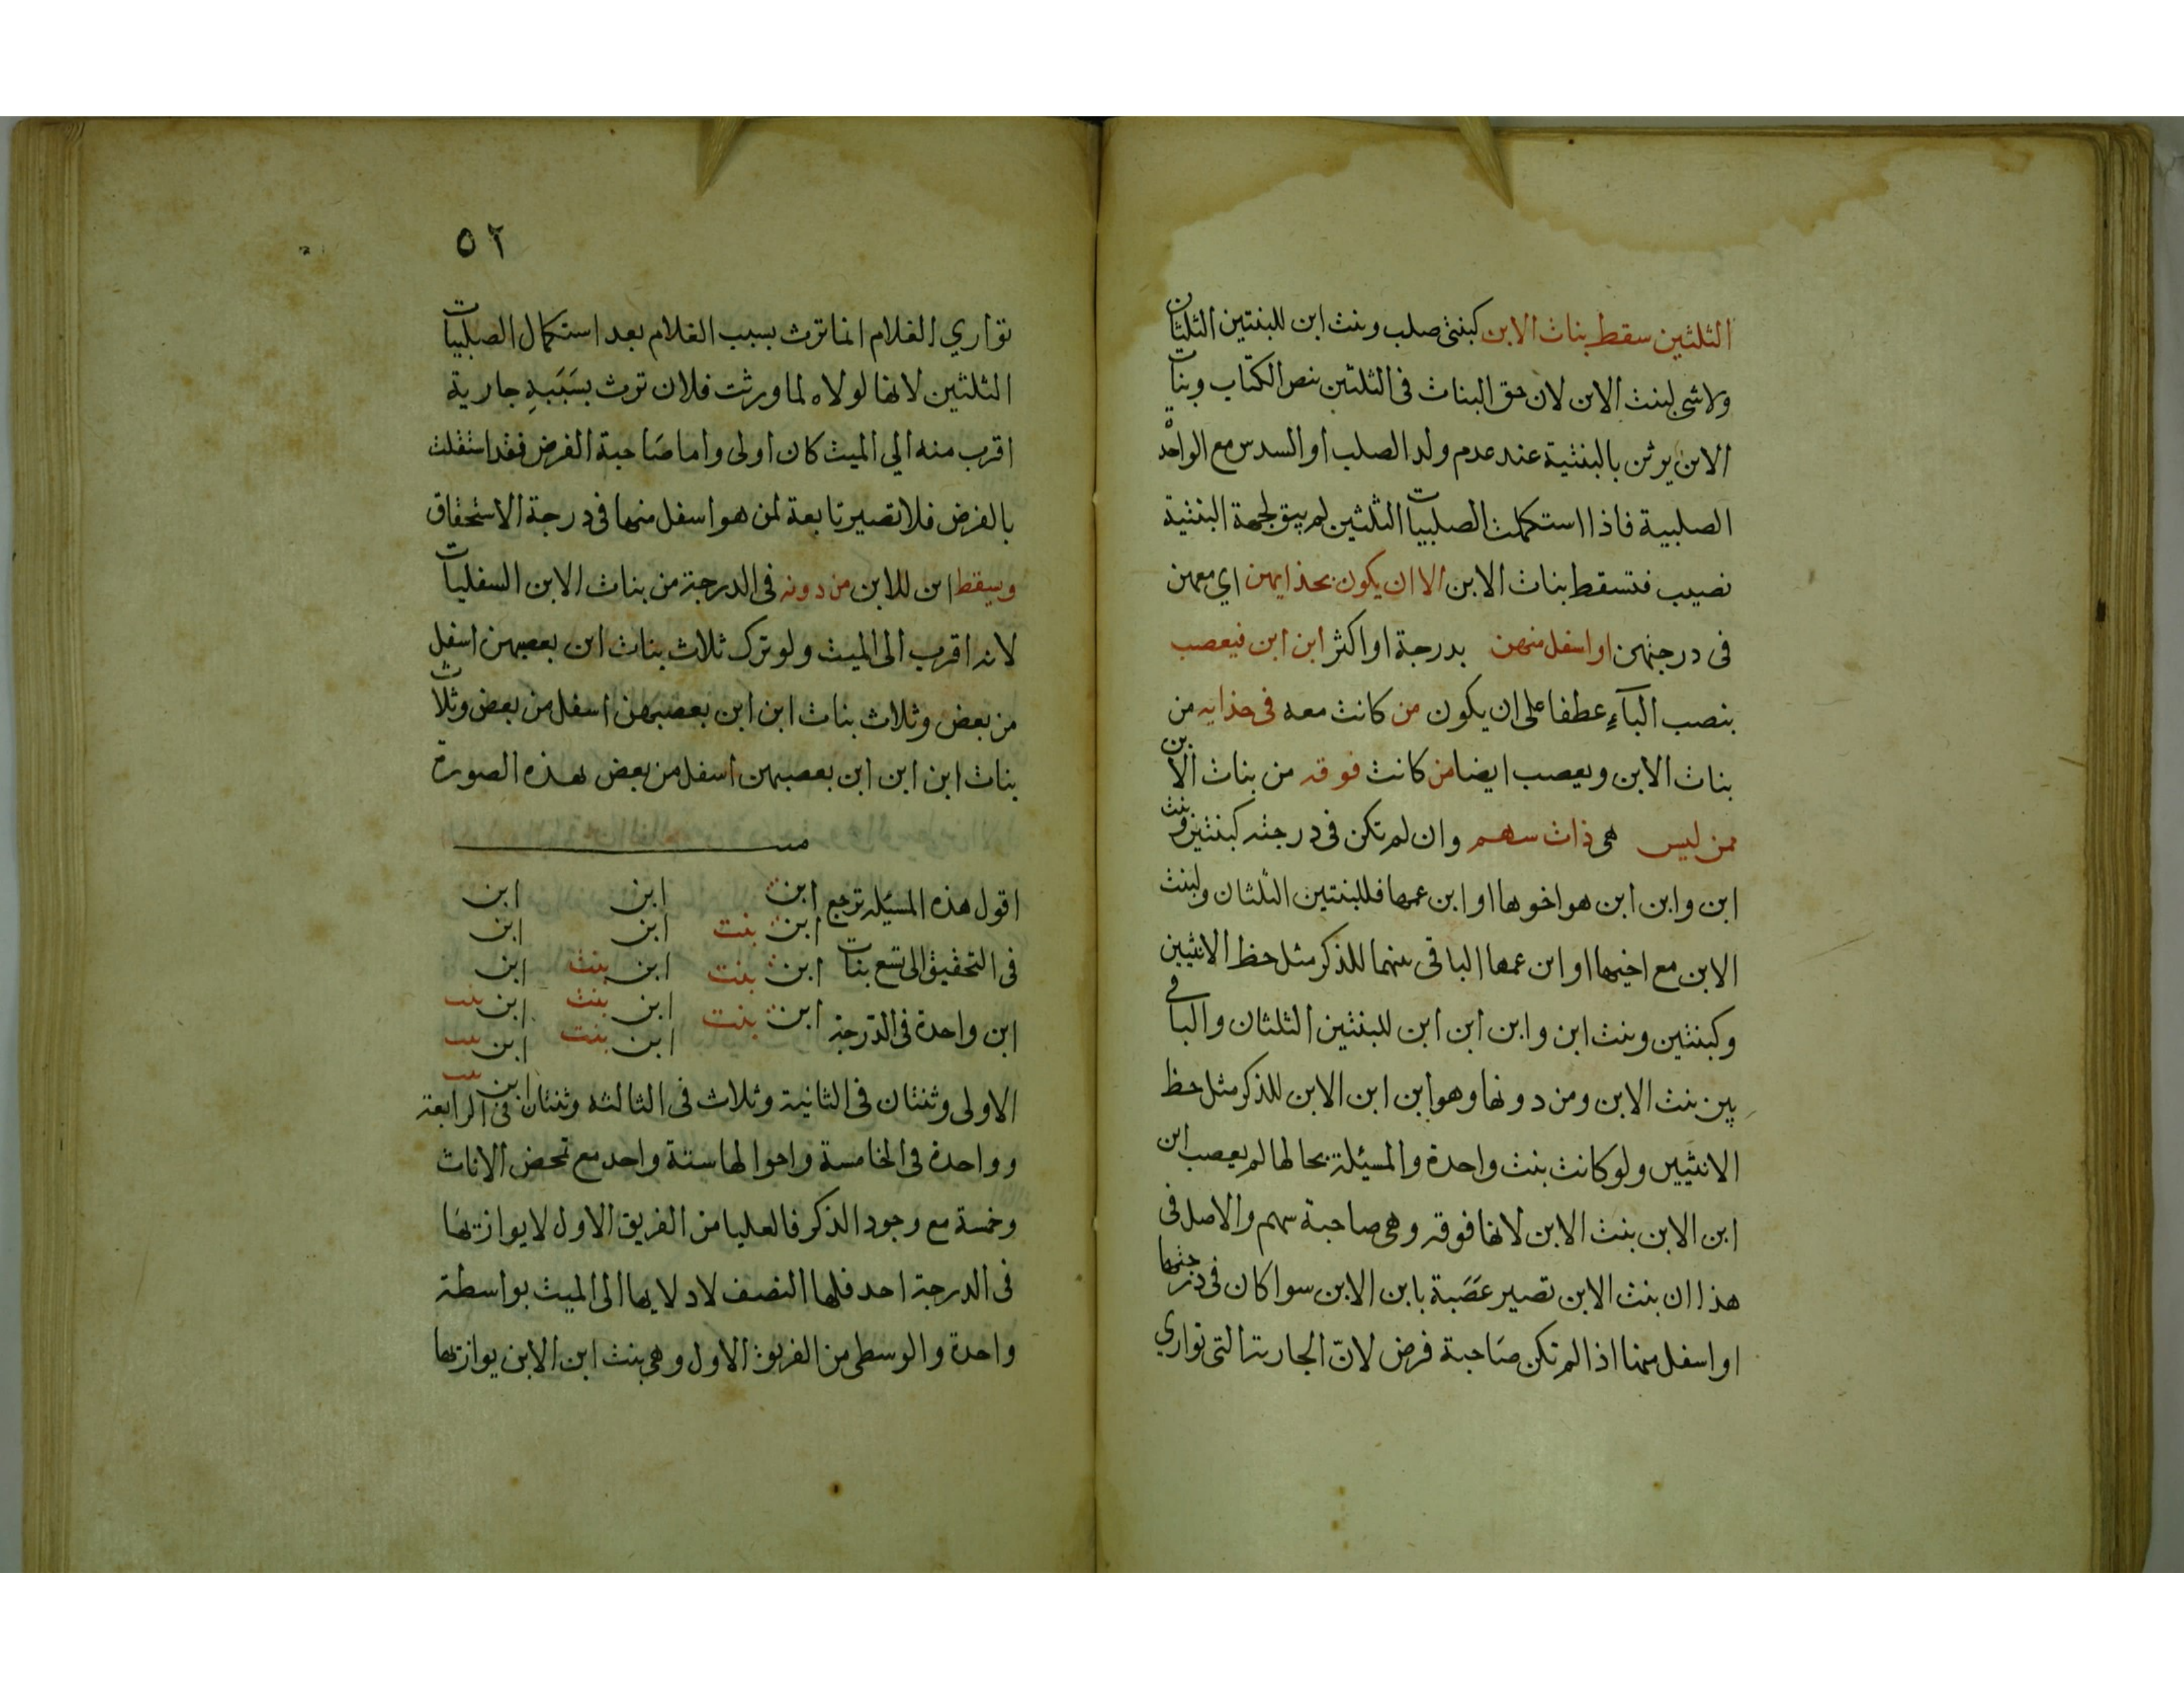 الثلثين سقط بنات الابن كبنتى صلب وبنت ابن للبنتين الثلثان
ولا شى لبنت الابن لان حق البنات فى الثلثين بنص الكتاب وبنات
الابن يرثن بالبنتية عند عدم ولد الصلب او السدس مع الواحدة
الصلبية فاذا استكملت الصلبيات الثلثين لم يبق لجهة البنتية
نصيب فتسقط بنات الابن الا ان يكون بحذايهن اي معهن
فى درجتهن او اسفل منهن بدرجة او اكثر ابن ابن فيعصب
بنصب الباء عطفا على ان يكون من كانت معه فى حذايه من
بنات الابن ويعصب ايضا من كانت فوقه من بنات الابن
ممن ليس هى ذات سهم وان لم تكن فى درجته كبنتين وبنت
ابن وابن ابن هو اخوها او ابن عمها فللبنتين الثلثان ولبنت
الابن مع اخيها او ابن عمها الباقى بينهما للذكر مثل حظ الانثيين
وكبنتين وبنت ابن وابن ابن ابن للبنتين الثلثان والباقى
بين بنت الابن ومن دونها وهو ابن ابن الابن للذكر مثل حظ
الانثيين ولو كانت بنت واحدة والمسئلة بحالها لم يعصب ابن
ابن الابن بنت الابن لانها فوقه وهى صاحبة سهم والاصل فى
هذا ان بنت الابن تصير عصبة بابن الابن سوا كان فى درجتها
او اسفل منها اذا لم تكن صاحبة فرض لان الجارية التى توازي
٥٢
توازي الغلام انما ترث بسبب الغلام بعد استكمال الصلبيات
الثلثين لانها لولاه لما ورثت فلان ترث بسببه جارية
اقرب منه الي الميت كان اولى واما صاحبة الفرض فقد استقلت
بالفرض فلا تصير تابعة لمن هو اسفل منها فى درجة الاستحقاق
ويسقط ابن للابن من دونه فى الدرجة من بنات الابن السفليات
لانه اقرب الى الميت ولو ترك ثلاث بنات ابن بعضهن اسفل
من بعض وثلاث بنات ابن ابن بعضهن اسفل من بعض وثلاث
بنات ابن ابن ابن بعضهن اسفل من بعض بهذه الصورة
اقول هذه المسئلة ترجع ابن ابن ابن
ابن بنت ابن ابن
فى التحقيق الى تسع بنات ابن بنت ابن بنت ابن
ابن واحدة فى الدرجة ابن بنت ابن بنت ابن بنت
ابن بنت ابن بنت
ابن بنت
الاولى وثنتان فى الثانية وثلاث فى الثالثة وثنتان فى الرابعة
وواحدة فى الخامسة واحوالها ستة واحد مع تمحض الاناث
وخمسة مع وجود الذكر فالعليا من الفريق الاول لا يوازتها
فى الدرجة احد فلها النصف لادلايها الى الميت بواسطة
واحدة والوسطى من الفريق الاول وهى بنت ابن الابن يوازتها